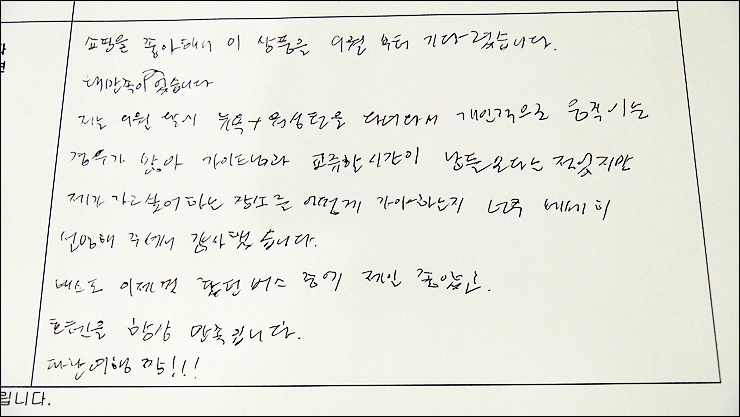 쇼핑을 좋아해서 이 상품을 9월 부터 기다렸습니다.
대만족이었습니다
저는 9월 뉴욕+워싱턴을 다녀와서 개인적으로 움직이는
경우가 많아 가이드님과 교류한 시간이 남들보다는 적었지만
제가 가고싶어하는 장소를 어떻게 가야하는지 너무 세세히
설명해 주셔서 감사했습니다.
버스도 이제껏 탔던 버스 중에 제일 좋았고.
호텔은 항상 만족입니다.
파란여행 짝!!!
립니다.